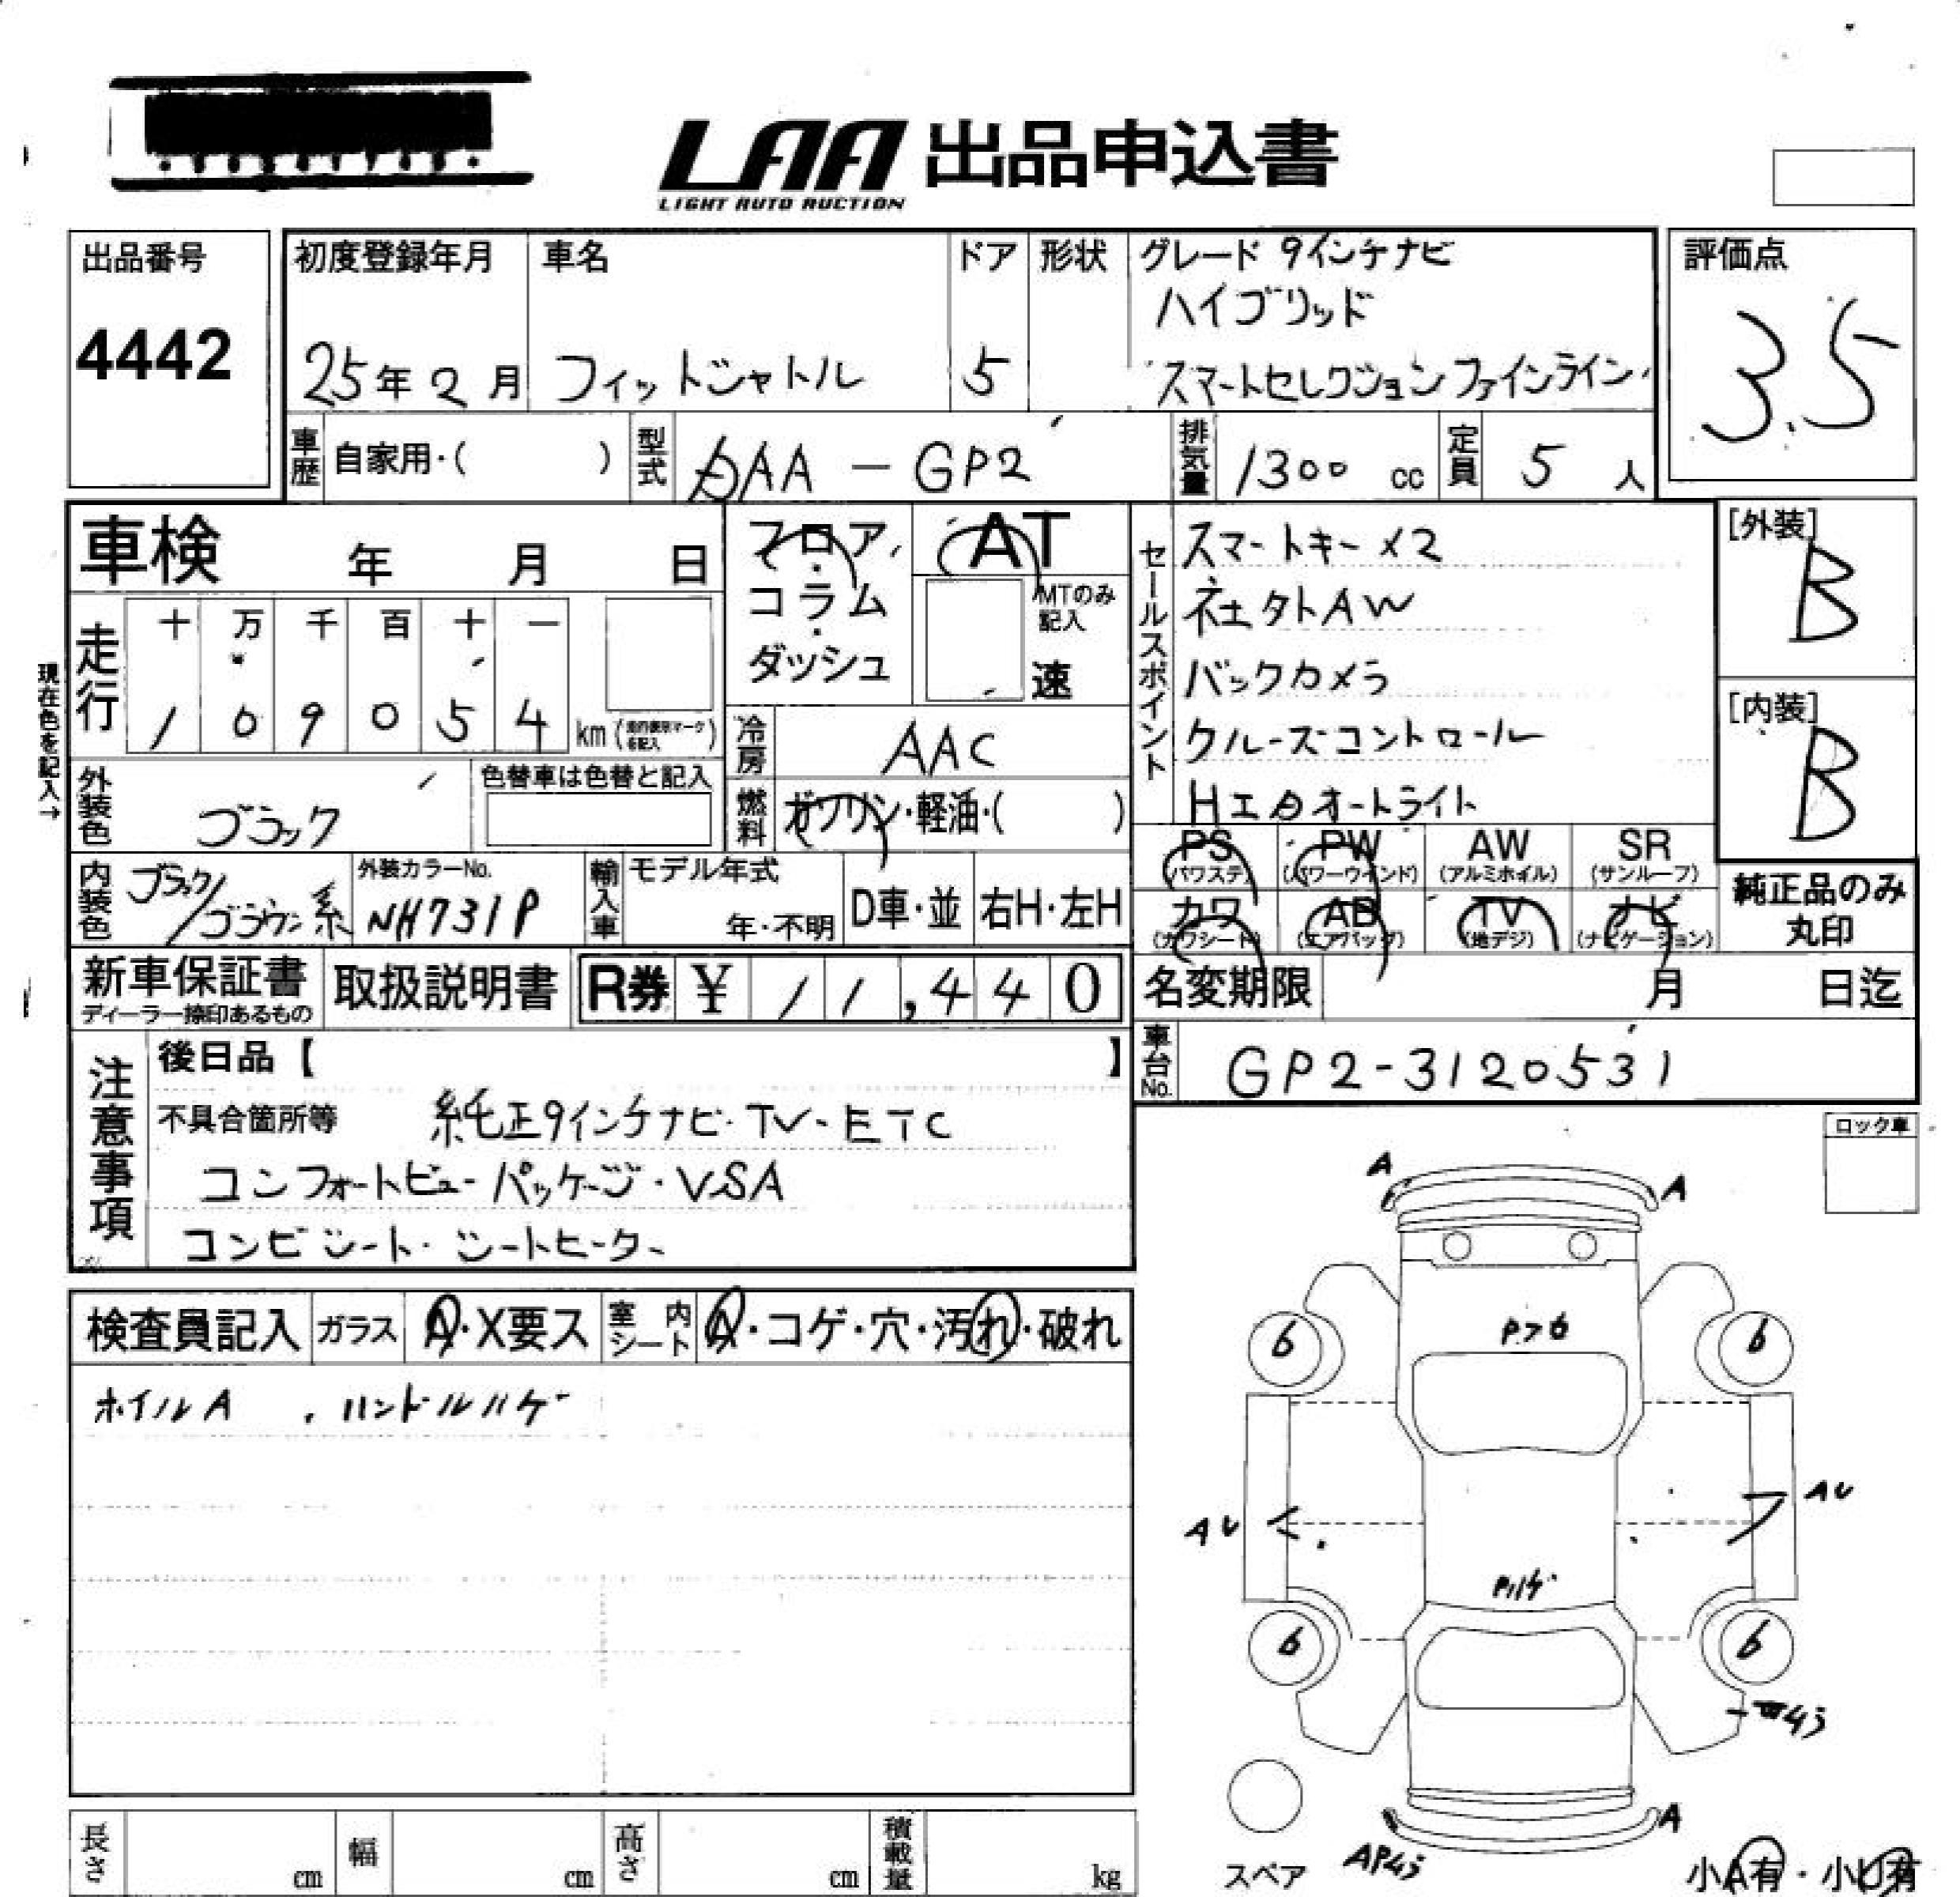 LAA 出品申込書
LIGHT AUTO AUCTION
出品番号
4442
初度登録年月
25年2月
車名
フィットシャトル
ドア
5
形状
グレード 9インチナビ
ハイブリッド
スマートセレクションファインライン
評価点
3.5
車歴
自家用・( )
型式
DAA-GP2
排気量
1300 cc
定員
5 人
車検 年 月 日
フロア・コラム・ダッシュ
AT
MTのみ記入
速
セールスポイント
スマートキー×2
社外AW
バックカメラ
クルーズコントロール
HID オートライト
[外装]
B
[内装]
B
現在色を記入→
走行
十 万 千 百 十 一
1 0 9 0 5 4 km
冷房
AAC
燃料
ガソリン・軽油・( )
外装色
ブラック
色替車は色替と記入
内装色
ブラック/ブラウン系
外装カラーNo.
NH731P
輸入車
モデル年式
年・不明
D車・並
右H・左H
PS (パワステ)
PW (パワーウインド)
AW (アルミホイル)
SR (サンルーフ)
カワ (カワシート)
AB (エアバッグ)
TV (地デジ)
ナビ (ナビゲーション)
純正品のみ
丸印
新車保証書
ディーラー捺印あるもの
取扱説明書
R券 ¥ 11,440
名変期限 月 日迄
車台No.
GP2-3120531
注意事項
後日品【 】
不具合箇所等
純正9インチナビ・TV・ETC
コンフォートビューパッケージ・VSA
コンビシート・シートヒーター
ロック車
検査員記入
ガラス
A・X要ス
室内シート
A・コゲ・穴・汚れ・破れ
ホイルA . ハンドルハゲ
A
A
6
6
AU
AU
Pハゲ
6
6
A
スペア
小A有・小U有
長さ cm
幅 cm
高さ cm
積載量 kg